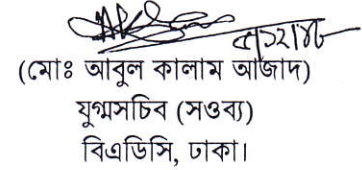 (মোঃ আবুল কালাম আজাদ)
যুগ্মসচিব (সওব্য)
বিএডিসি, ঢাকা।